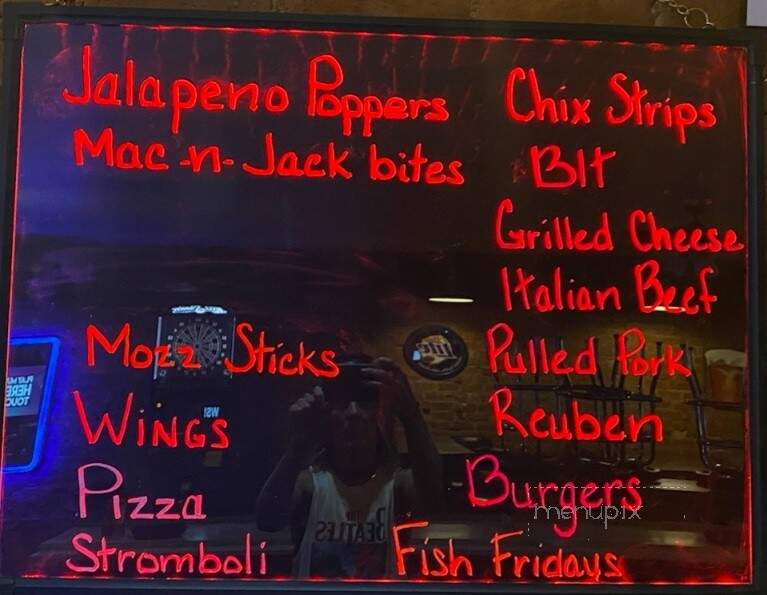 Jalapeno Poppers
Mac-n-Jack bites
Mozz Sticks
Wings
Pizza
Stromboli
Chix Strips
Blt
Grilled Cheese
Italian Beef
Pulled Pork
Reuben
Burgers
Fish Fridays
menupix
Lite
BEATLES